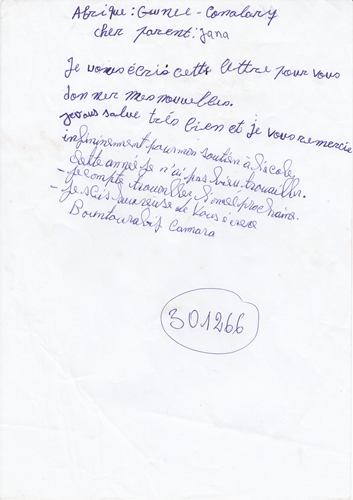 Afrique: Guinee - Conakry
cher parent: Jana
Je vous écris cette lettre pour vous
donner mes nouvelles.
je vous salue très bien et je vous remercie
infiniment pour mon soutien à
cette année je n'ai pas bien travailler.
- je compte travailler l'année prochaine.
- je suis heureuse de vous écrire
Camara
301266